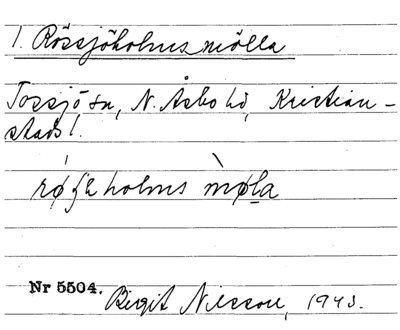 1. Rössjöholms mölla
Tossjö sn, N. Åsbo hd, Kristian-
stads l.
røʃɛholms mø̀la
Nr 5504. Birgit Nilsson, 1943.